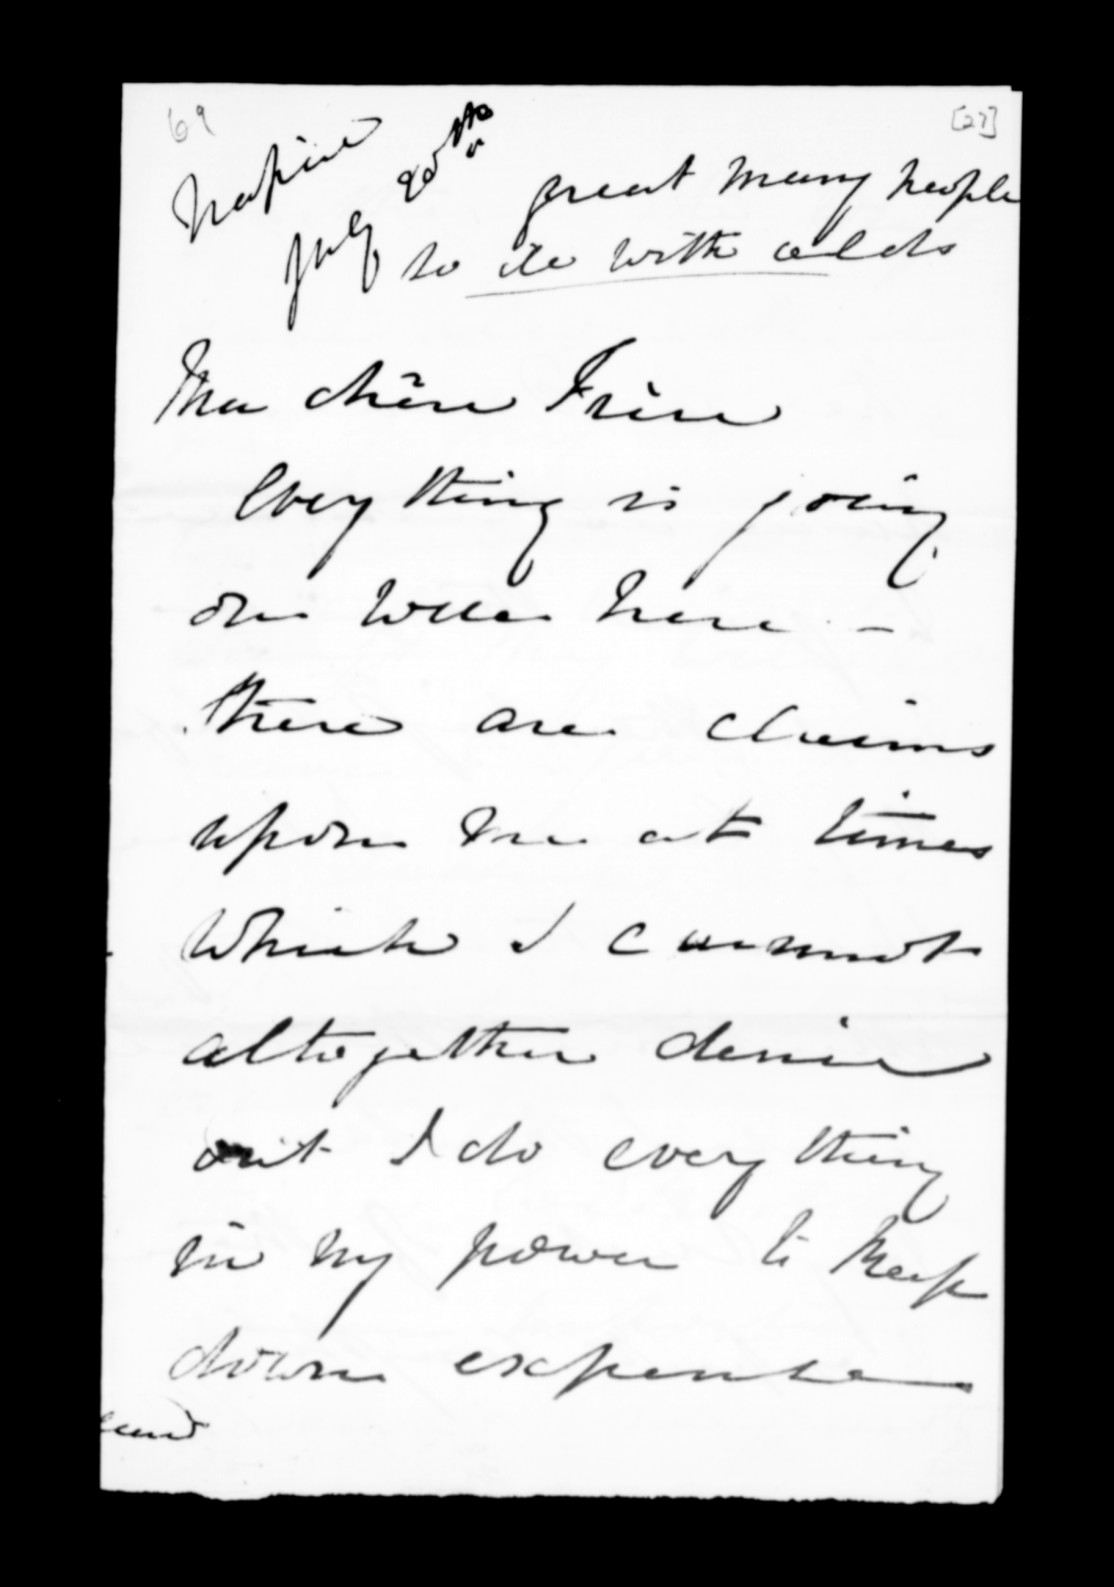 69
[27]
Napier
July 20th
great many people
to die with colds
Mon chère Frère
Every thing is going
on well here -
there are claims
upon me at times
which I cannot
altogether denie
out I do every thing
in my power to keep
down expense